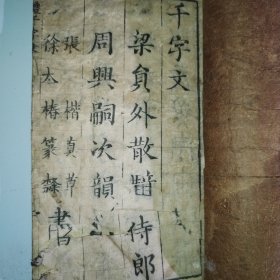 千字文
梁負外散𮪍侍郎
周興嗣次韻
張楷真草
徐太椿篆隸
書